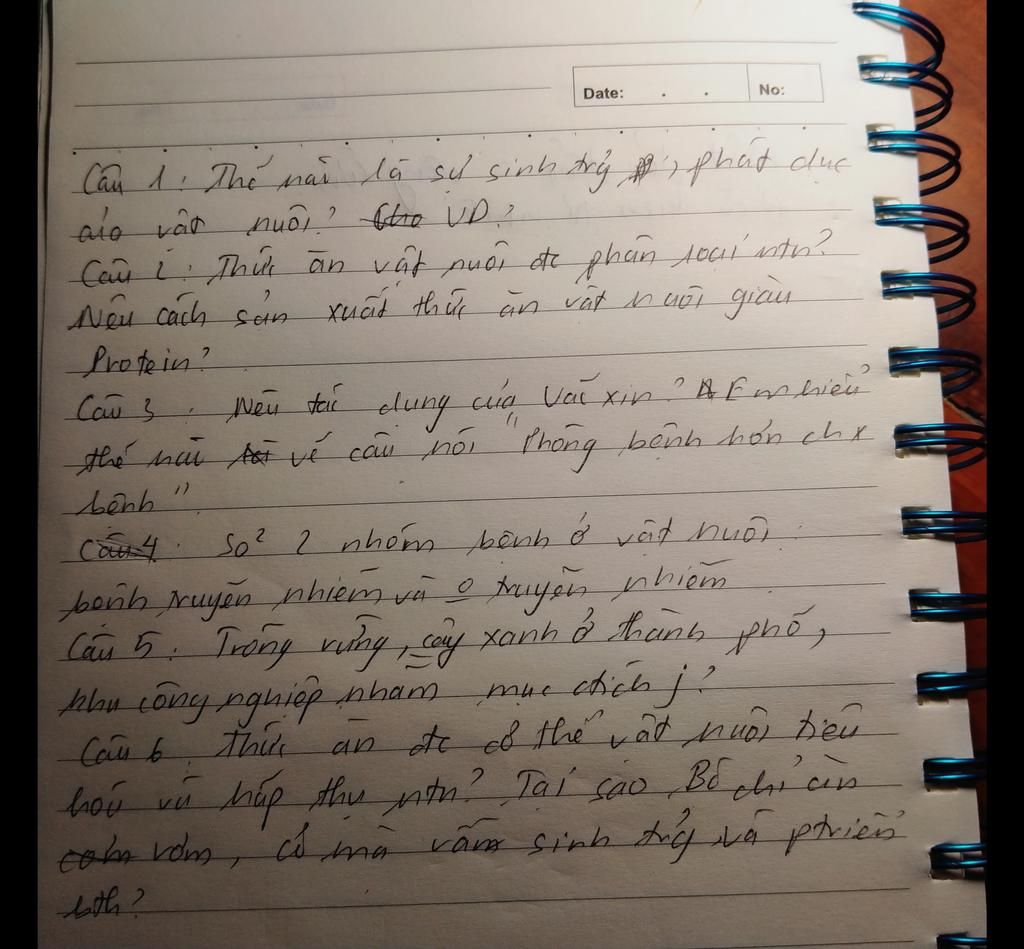 Date: . . No:
Câu 1: Thế nào là sự sinh trg, phát dục
của vật nuôi? Cho VD?
Câu 2: Thức ăn vật nuôi đc phân loại ntn?
Nêu cách sản xuất thức ăn vật nuôi giàu
Protein?
Câu 3: Nêu tác dụng của Vắc xin? Em hiểu
thế nào về câu nói "Phòng bệnh hơn ch~
bệnh".
Câu 4: So² 2 nhóm bệnh ở vật nuôi:
bệnh truyền nhiễm và 0 truyền nhiễm
Câu 5: Trồng rừng, cây xanh ở thành phố,
khu công nghiệp nhằm mục đích j?
Câu 6: Thức ăn đc cơ thể vật nuôi tiêu
hoá và hấp thụ ntn? Tại sao Bò chỉ ăn
rơm, cỏ mà vẫn sinh trg và ptriển
bth?